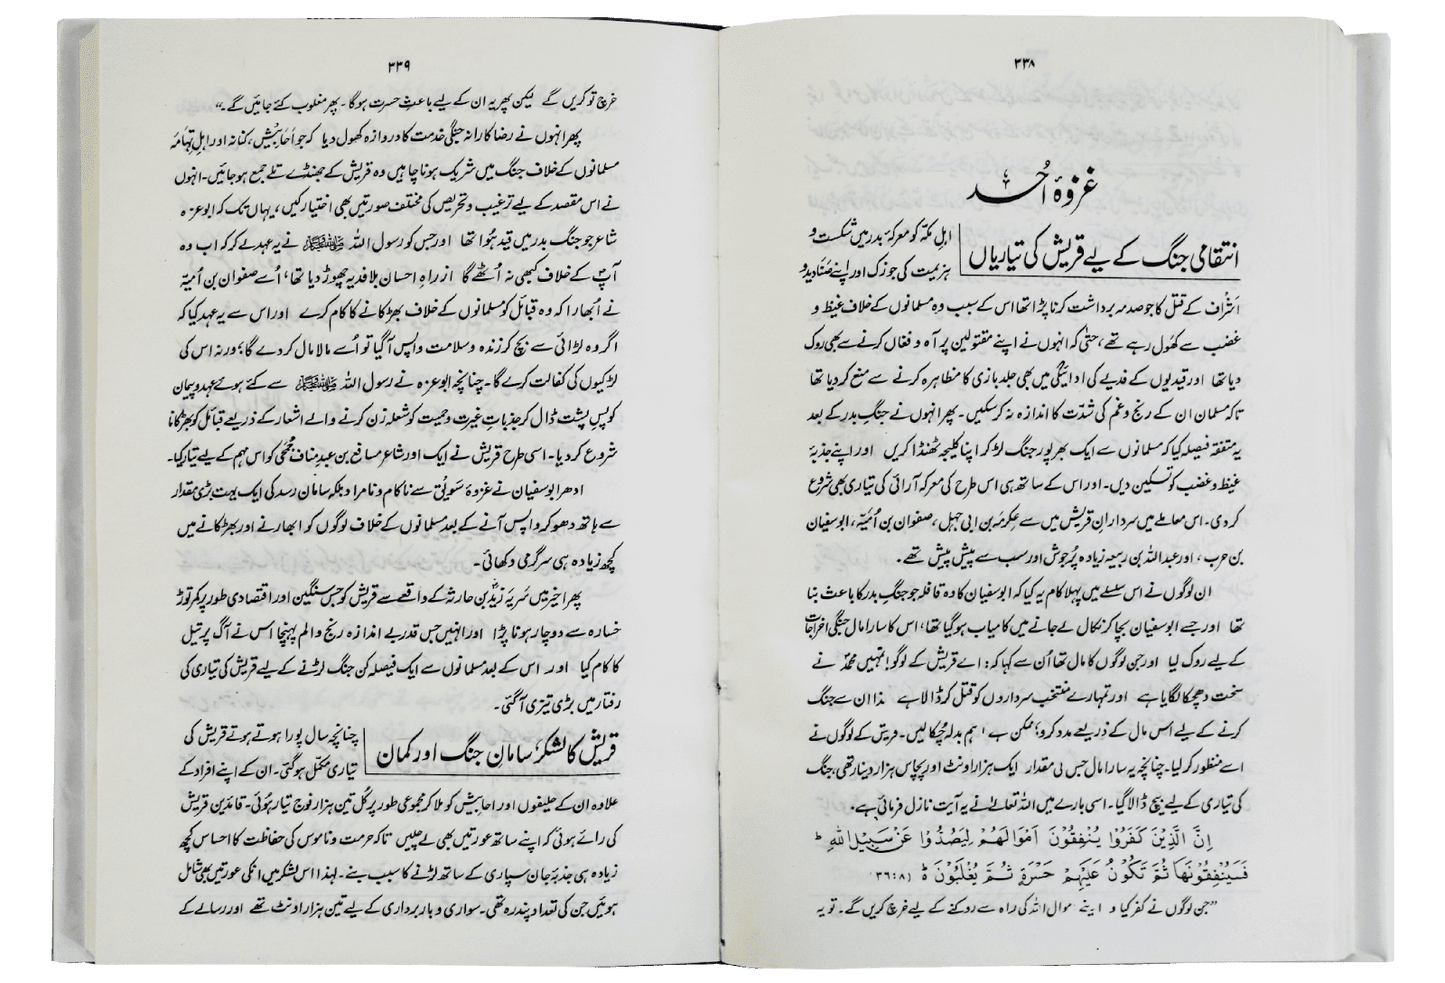 ۳۳۸
غزوۂ اُحد
انتقامی جنگ کے لیے قریش کی تیاریاں
اہلِ مکّہ کو معرکۂ بدر میں شکست و
ہزیمت کی جو زک اور اپنے صَنَادید و
اَشراف کے قتل کا جو صدمہ برداشت کرنا پڑا تھا اس کے سبب وہ مسلمانوں کے خلاف غیظ و
غضب سے کھول رہے تھے، حتٰی کہ انہوں نے اپنے مقتولین پر آہ و فغاں کرنے سے بھی روک
دیا تھا اور قیدیوں کے فدیے کی ادائیگی میں بھی جلد بازی کا مظاہرہ کرنے سے منع کر دیا تھا
تاکہ مسلمان ان کے رنج و غم کی شدّت کا اندازہ نہ کر سکیں۔ پھر انہوں نے جنگِ بدر کے بعد
یہ متفقہ فیصلہ کیا کہ مسلمانوں سے ایک بھرپور جنگ لڑ کر اپنا کلیجہ ٹھنڈا کریں اور اپنے جذبۂ
غیظ و غضب کو تسکین دیں۔ اور اس کے ساتھ ہی اس طرح کی معرکہ آرائی کی تیاری بھی شروع
کر دی۔ اس معاملے میں سردارانِ قریش میں سے عِکرِمہ بن ابی جہل، صفوان بن اُمیّہ، ابوسفیان
بن حرب، اور عبداللہ بن ربیعہ زیادہ پُرجوش اور سب سے پیش پیش تھے۔
ان لوگوں نے اس سلسلے میں پہلا کام یہ کیا کہ ابوسفیان کا وہ قافلہ جو جنگِ بدر کا باعث بنا
تھا اور جسے ابوسفیان بچا کر نکال لے جانے میں کامیاب ہو گیا تھا، اس کا سارا مال جنگی اخراجات
کے لیے روک لیا اور جن لوگوں کا مال تھا اُن سے کہا کہ: اے قریش کے لوگو! تمہیں محمّدؐ نے
سخت دھچکا لگایا ہے اور تمہارے منتخب سرداروں کو قتل کر ڈالا ہے لہٰذا ان سے جنگ
کرنے کے لیے اس مال کے ذریعے مدد کرو؛ ممکن ہے ہم بدلہ چُکا لیں۔ قریش کے لوگوں نے
اسے منظور کر لیا۔ چنانچہ یہ سارا مال جس کی مقدار ایک ہزار اونٹ اور پچاس ہزار دینار تھی، جنگ
کی تیاری کے لیے بیچ ڈالا گیا۔ اسی بارے میں اللہ تعالےٰ نے یہ آیت نازل فرمائی ہے۔
اِنَّ الَّذِیْنَ کَفَرُوْا یُنْفِقُوْنَ اَمْوَالَھُمْ لِیَصُدُّوْا عَنْ سَبِیْلِ اللّٰہِ ؕ
فَسَیُنْفِقُوْنَھَا ثُمَّ تَکُوْنُ عَلَیْھِمْ حَسْرَۃٍ ثُمَّ یُغْلَبُوْنَ ؕ (۳۶:۸)
”جن لوگوں نے کفر کیا وہ اپنے اموال اللہ کی راہ سے روکنے کے لیے خرچ کریں گے۔ تو یہ
۳۳۹
خرچ تو کریں گے لیکن پھر یہ ان کے لیے باعثِ حسرت ہو گا۔ پھر مغلوب کئے جائیں گے۔“
پھر انہوں نے رضاکارانہ جنگی خدمت کا دروازہ کھول دیا کہ جو اَحابِیش، کنانہ اور اہلِ تِہامَہ
مسلمانوں کے خلاف جنگ میں شریک ہونا چاہیں وہ قریش کے جھنڈے تلے جمع ہو جائیں۔ انہوں
نے اس مقصد کے لیے ترغیب و تحریص کی مختلف صورتیں بھی اختیار کیں، یہاں تک کہ ابوعزہ
شاعر جو جنگِ بدر میں قید ہُوا تھا اور جس کو رسول اللہ ﷺ نے یہ عہد لے کر کہ اب وہ
آپؐ کے خلاف کبھی نہ اُٹھے گا ازراہِ احسان بلا فدیہ چھوڑ دیا تھا، اُسے صفوان بن اُمیّہ
نے اُبھارا کہ وہ قبائل کو مسلمانوں کے خلاف بھڑکانے کا کام کرے اور اس سے یہ عہد کیا کہ
اگر وہ لڑائی سے بچ کر زندہ و سلامت واپس آ گیا تو اُسے مالا مال کر دے گا؛ ورنہ اس کی
لڑکیوں کی کفالت کرے گا۔ چنانچہ ابوعزہ نے رسول اللہ ﷺ سے کئے ہوئے عہد و پیمان
کو پسِ پشت ڈال کر جذباتِ غیرت و حمیت کو شعلہ زن کرنے والے اشعار کے ذریعے قبائل کو بھڑکانا
شروع کر دیا۔ اسی طرح قریش نے ایک اور شاعر مسافع بن عبد مناف جُمَحی کو اس مہم کے لیے تیار کیا۔
ادھر ابوسفیان نے غزوۂ سَویق سے ناکام و نامراد بلکہ سامان رسد کی ایک بہت بڑی مقدار
سے ہاتھ دھو کر واپس آنے کے بعد مسلمانوں کے خلاف لوگوں کو ابھارنے اور بھڑکانے میں
کچھ زیادہ ہی سرگرمی دکھائی۔
پھر اخیر میں سَریّہ زیدؓ بن حارثہ کے واقعے سے قریش کو جس سنگین اور اقتصادی طور پر کمر توڑ
خسارہ سے دوچار ہونا پڑا اور انہیں جس قدر بے اندازہ رنج و الم پہنچا اس نے آگ پر تیل
کا کام کیا اور اس کے بعد مسلمانوں سے ایک فیصلہ کن جنگ لڑنے کے لیے قریش کی تیاری کی
رفتار میں بڑی تیزی آ گئی۔
قریش کا لشکر، سامانِ جنگ اور کمان
چنانچہ سال پورا ہوتے ہوتے قریش کی
تیاری مکمّل ہو گئی۔ ان کے اپنے افراد کے
علاوہ ان کے حلیفوں اور احابیش کو ملا کر مجموعی طور پر کُل تین ہزار فوج تیار ہُوئی۔ قائدین قریش
کی رائے ہوئی کہ اپنے ساتھ عورتیں بھی لے چلیں تاکہ حرمت و ناموس کی حفاظت کا احساس کچھ
زیادہ ہی جذبۂ جان سپاری کے ساتھ لڑنے کا سبب بنے۔ لہٰذا اس لشکر میں انکی عورتیں بھی شامل
ہوئیں جن کی تعداد پندرہ تھی۔ سواری و باربرداری کے لیے تین ہزار اونٹ تھے اور رسالے کے